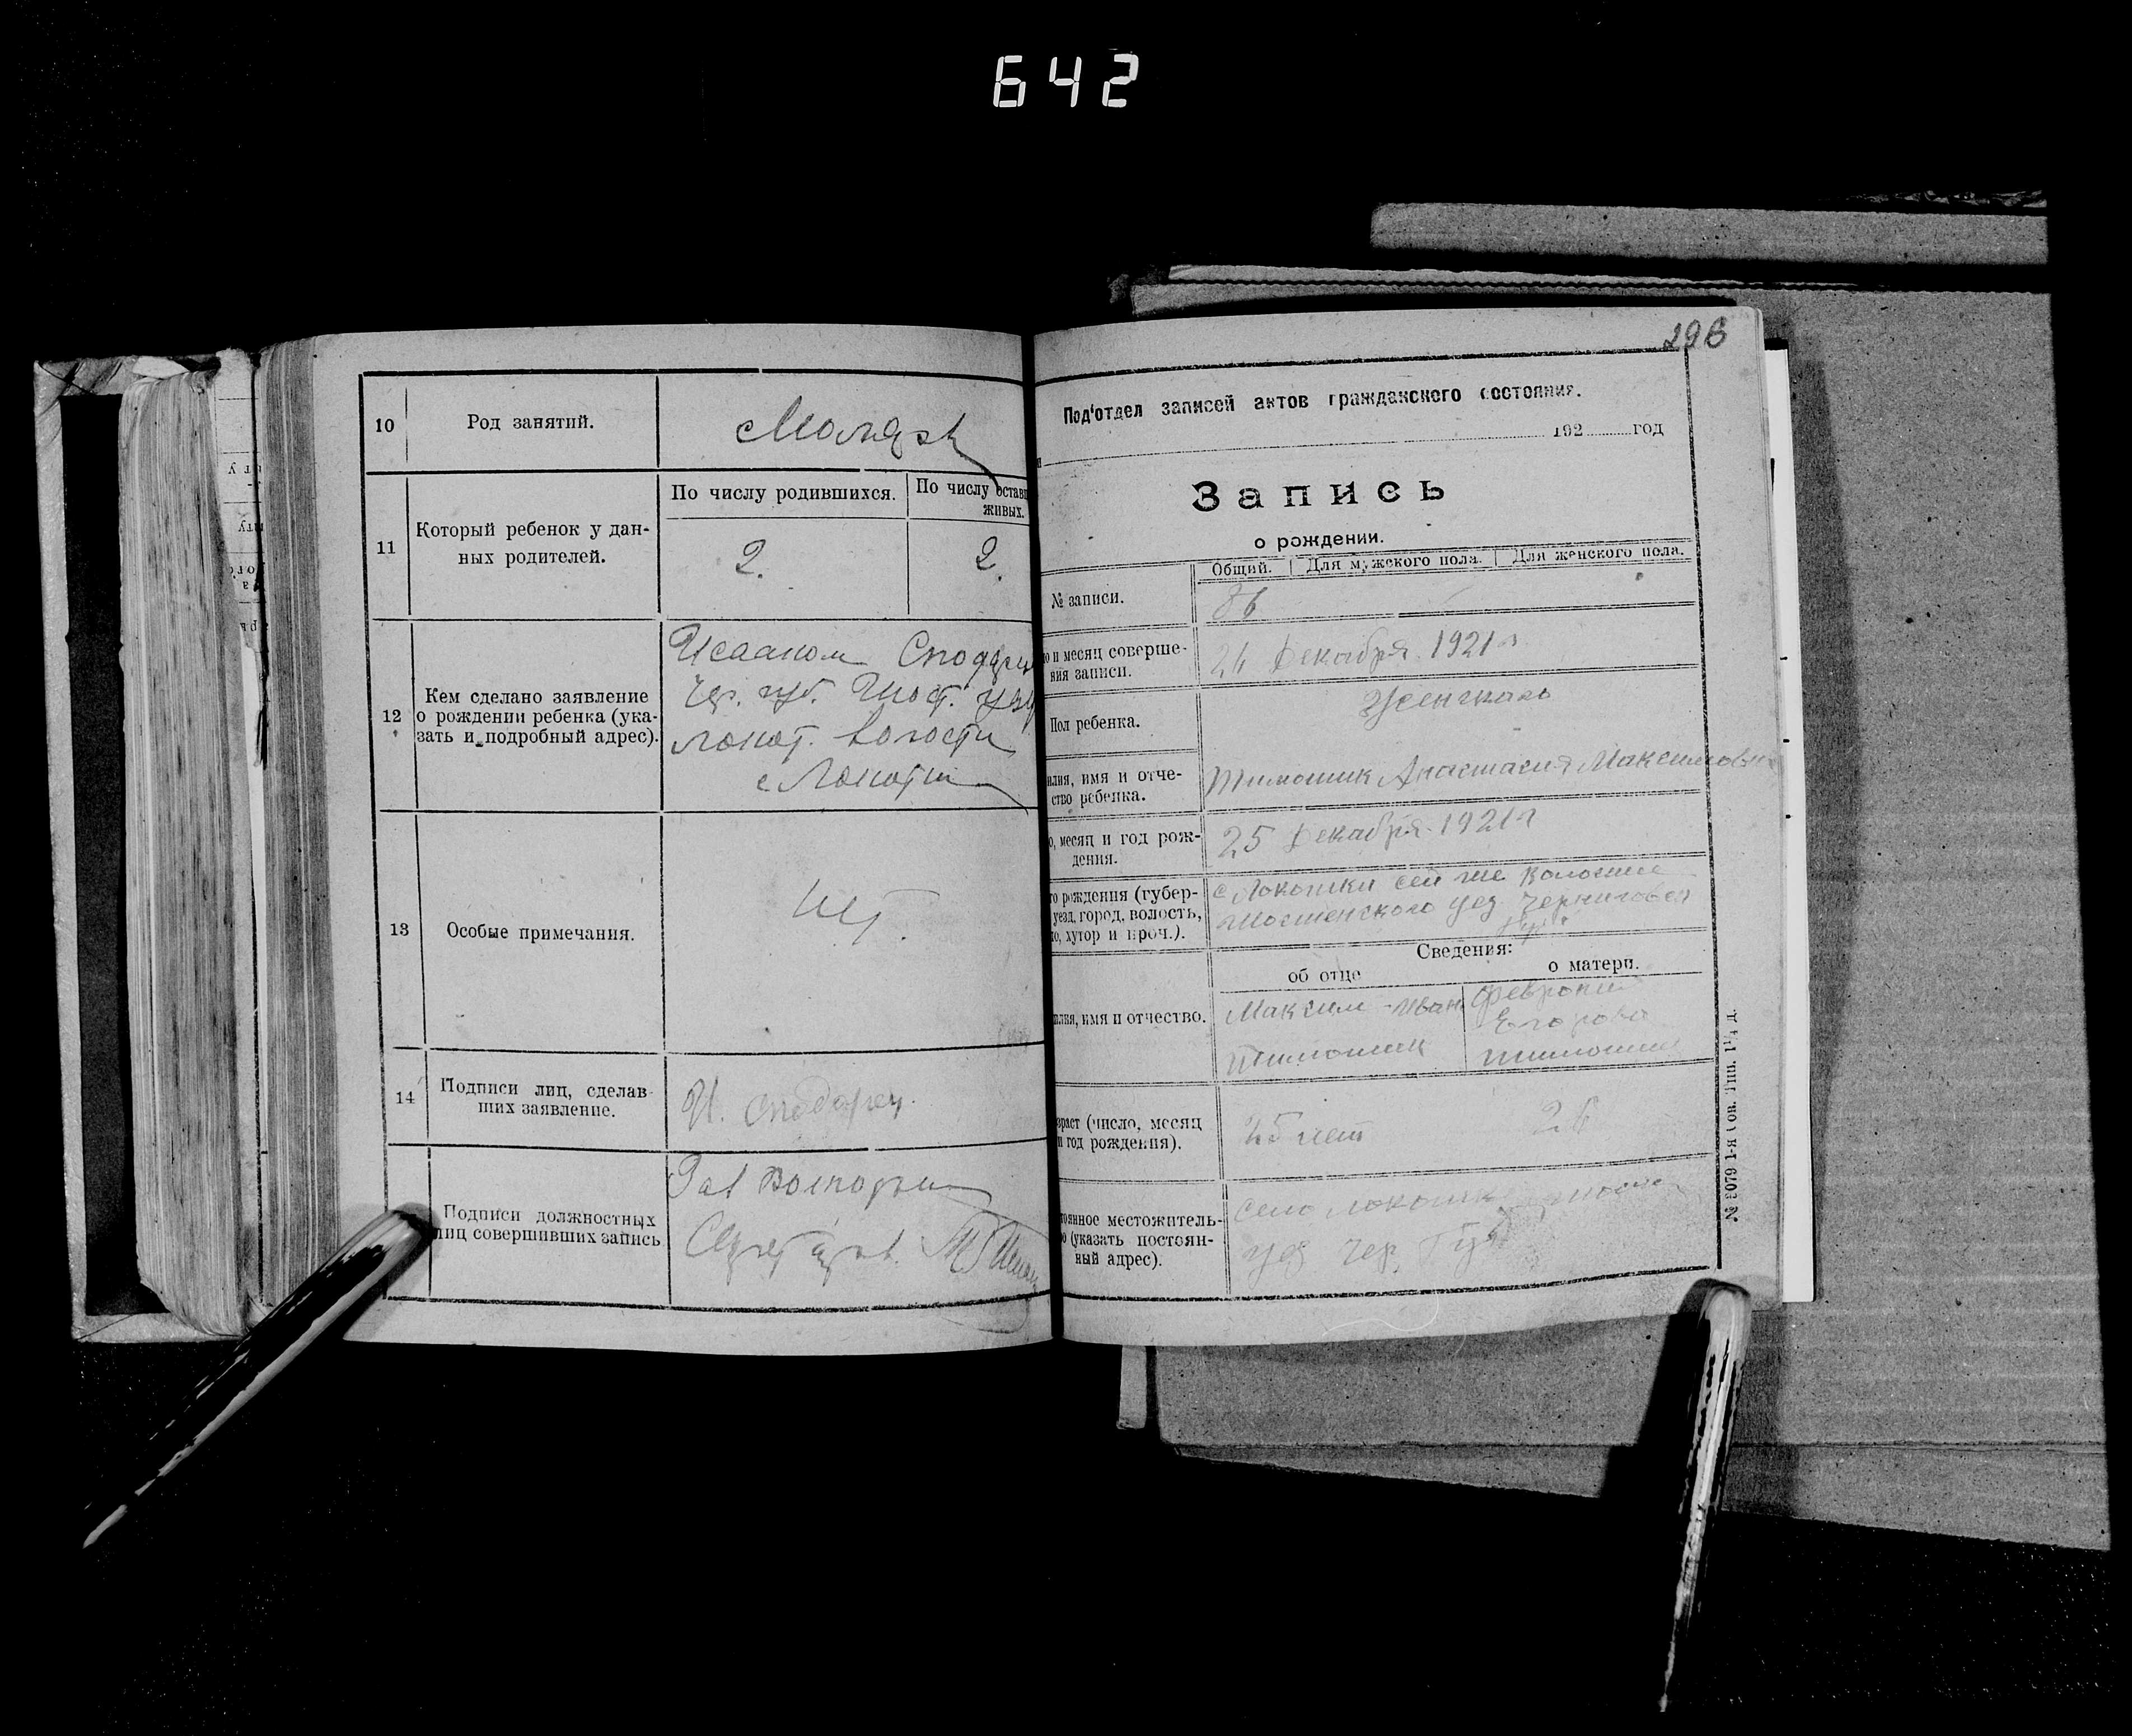 642
10
Род занятий.
Маляръ
11
Который ребенок у дан-
ных родителей.
По числу родившихся.
По числу остав
живых.
2.
2.
12
Кем сделано заявление
о рождении ребенка (ука-
зать и подробный адрес).
Исааком
Чер. губ. Шост. уез
волости
с
13
Особые примечания.
Нет.
14
Подписи лиц, сделав-
ших заявление.
И.
Подписи должностных
лиц совершивших запись
Зав
Секретарь
298
Под'отдел записей актов гражданского состояния.
192 год
Запись
о рождении.
Общий.
Для мужского пола.
Для женского пола.
№ записи.
о и месяц соверше-
ния записи.
Декабря 1921 г
Пол ребенка.
Женскаго
илия, имя и отче-
ство ребенка.
Тимошик Анастасия Максимовна
о, месяц и год рож-
дения.
25 Декабря 1921 г
то рождения (губер-
уезд, город, волость,
ло, хутор и проч.).
с Локотки сей же волости
Шостенского уез Черниговск
губ
Сведения:
об отце
о матери.
илия, имя и отчество.
Максим Иван
Тимошик
Феврония
Егорова
Тимошик
зраст (число, месяц
и год рождения).
25 лет
26
тоянное местожитель-
о (указать постоян-
ный адрес).
село Локотки
уез Чер. Губ